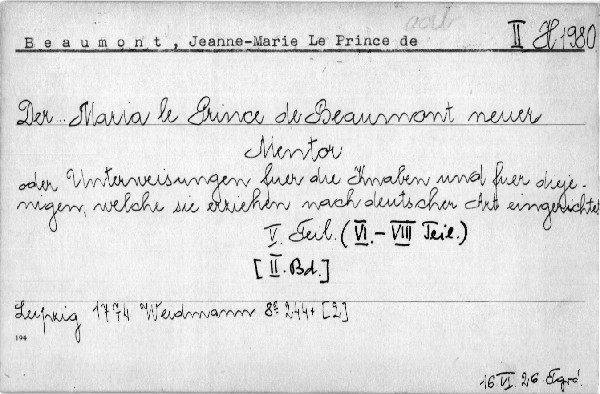 Beaumont, Jeanne-Marie Le Prince de II H 1980
Der Maria le Prince de Beaumont neuer
Mentor
oder Unterweisungen fuer die Knaben und fuer dieje-
nigen, welche sie erziehen nach deutscher Art eingerichtet
V. Teil. (VI. - VIII Teil.)
[II. Bd.]
Leipzig 1774 Weidmann 8° 244+[2]
194
16 VI. 26